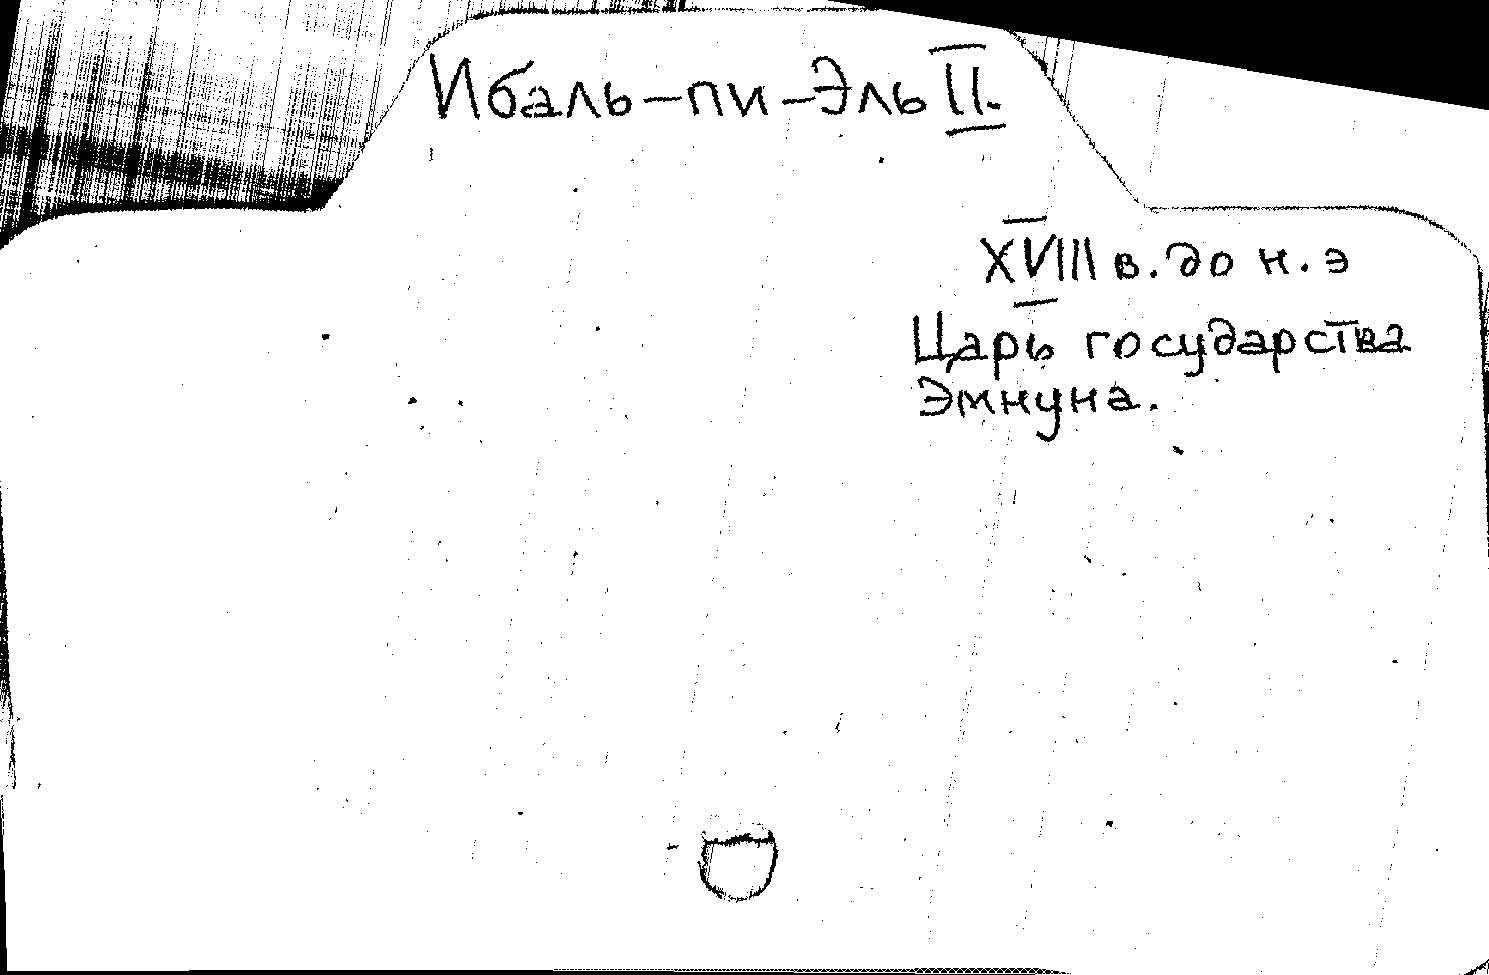 Ибаль-пи-Эль II.
XVIII в. до н. э
Царь государства
Эмнуна.